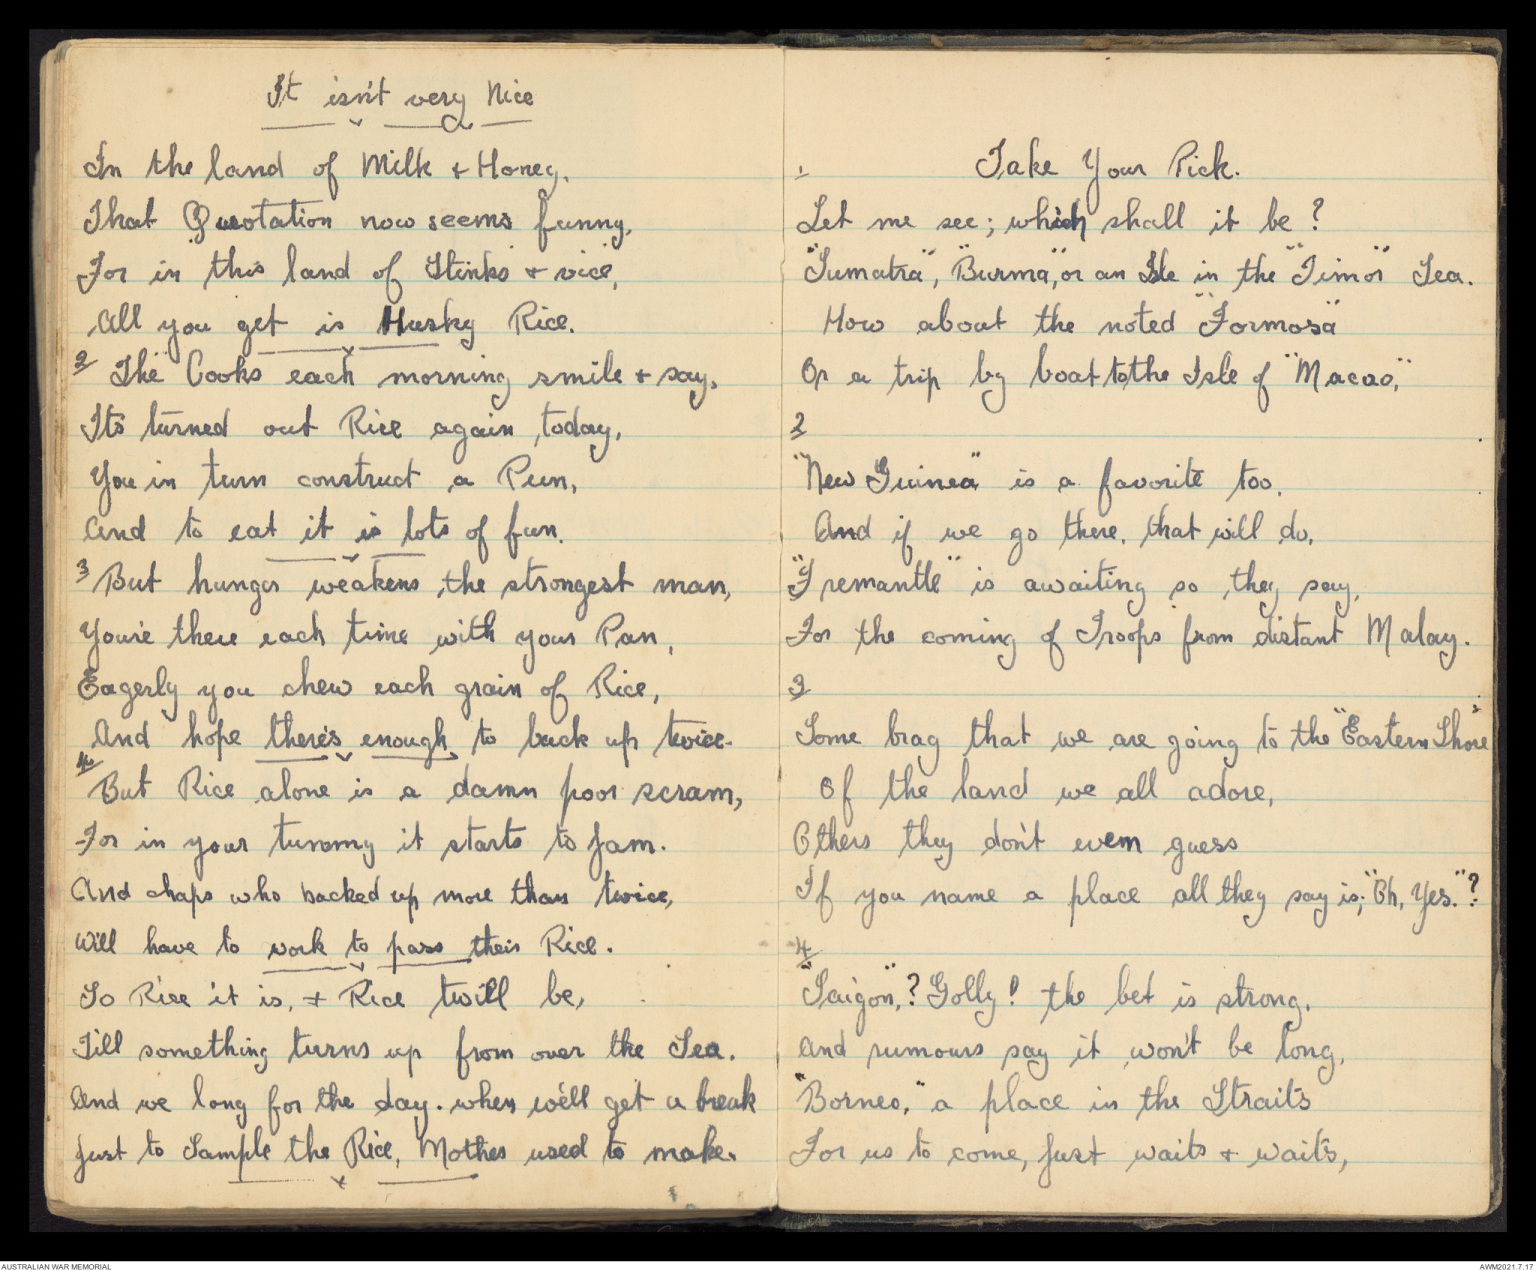 It isn't very Nice
In the land of Milk + Honey.
That Quotation now seems funny.
For in this land of Stinks + vice,
All you get is Husky Rice.
2 The Cooks each morning smile + say,
Its turned out Rice again today,
You in turn construct a Pun,
And to eat it is lots of fun.
3 But hunger weakens the strongest man,
You're there each time with your Pan,
Eagerly you chew each grain of Rice,
And hope there's enough to back up twice.
4 But Rice alone is a damn poor scram,
For in your tummy it starts to jam.
And chaps who backed up more than twice,
Will have to work to pass their Rice.
So Rice it is, + Rice twill be,
Till something turns up from over the Sea.
And we long for the day. when we'll get a break
Just to Sample the Rice, Mother used to make.
1 Take Your Pick.
Let me see; which shall it be?
"Sumatra", "Burma", or an Isle in the "Timor" Sea.
How about the noted "Formosa"
Or a trip by boat to the Isle of "Macao,"
2
"New Guinea" is a favorite too.
And if we go there, that will do,
"Fremantle" is awaiting so they say,
For the coming of Troops from distant Malay.
3
Some brag that we are going to the "Eastern Shore"
Of the land we all adore,
Others they don't even guess
If you name a place all they say is; "Oh, Yes."?
4
"Saigon",? Golly! the bet is strong.
And rumours say it won't be long,
"Borneo," a place in the Straits
For us to come, just waits + waits,
AUSTRALIAN WAR MEMORIAL
AWM2021.7.17